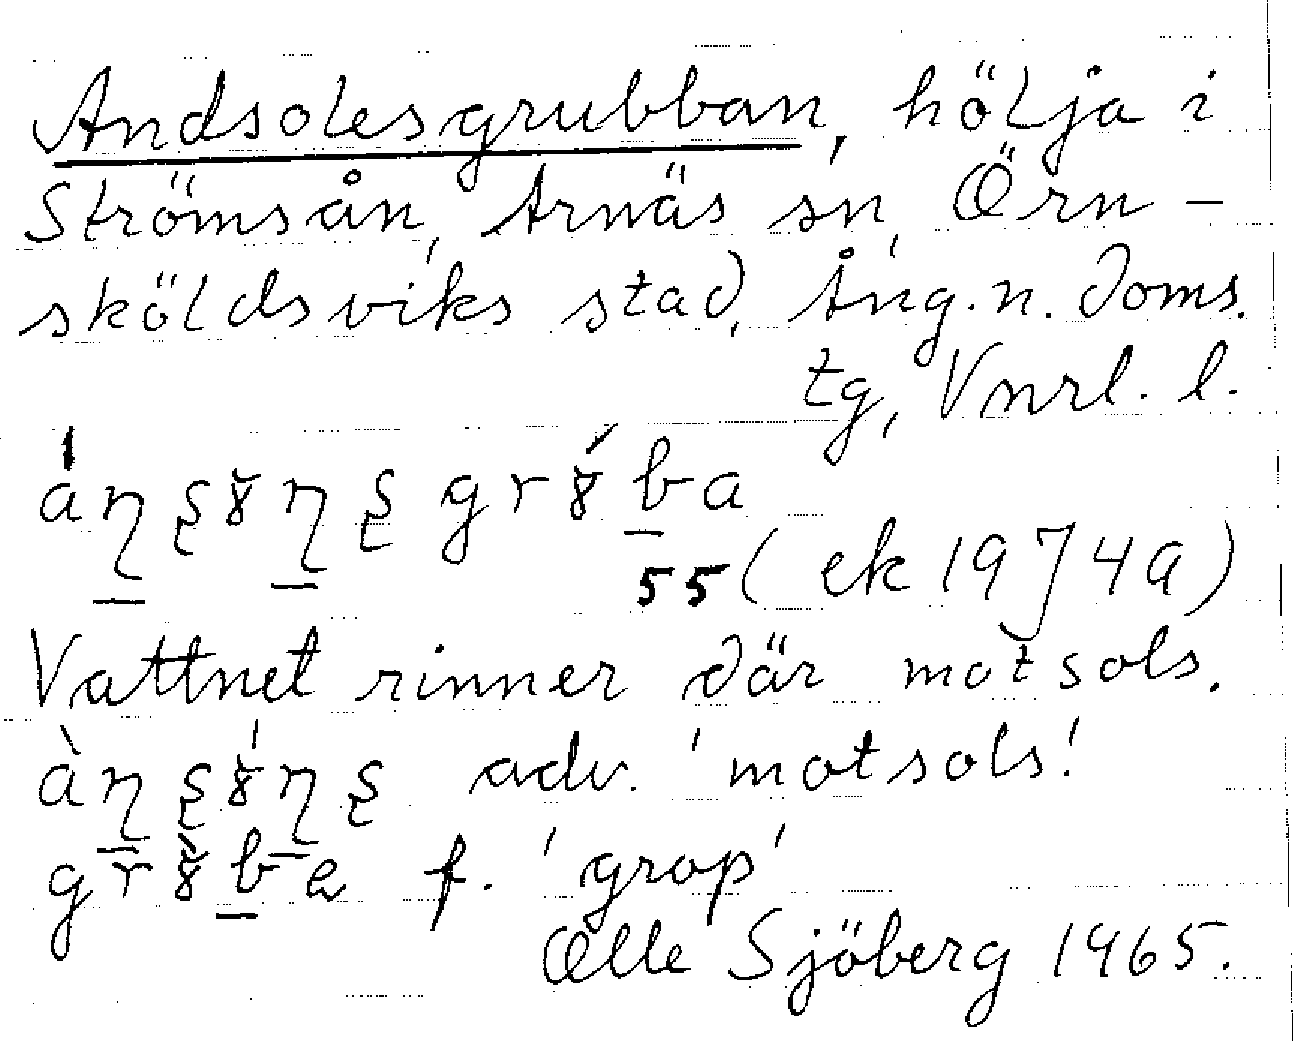 Andsolesgrubban, hölja i
Strömsån, Arnäs sn, Örn-
sköldsviks stad, Ång.n. doms.
tg, Vnrl. l.
55 (ek 19J4a)
Vattnet rinner där motsols.
adv. 'motsols!
f. 'grop'
Olle Sjöberg 1965.